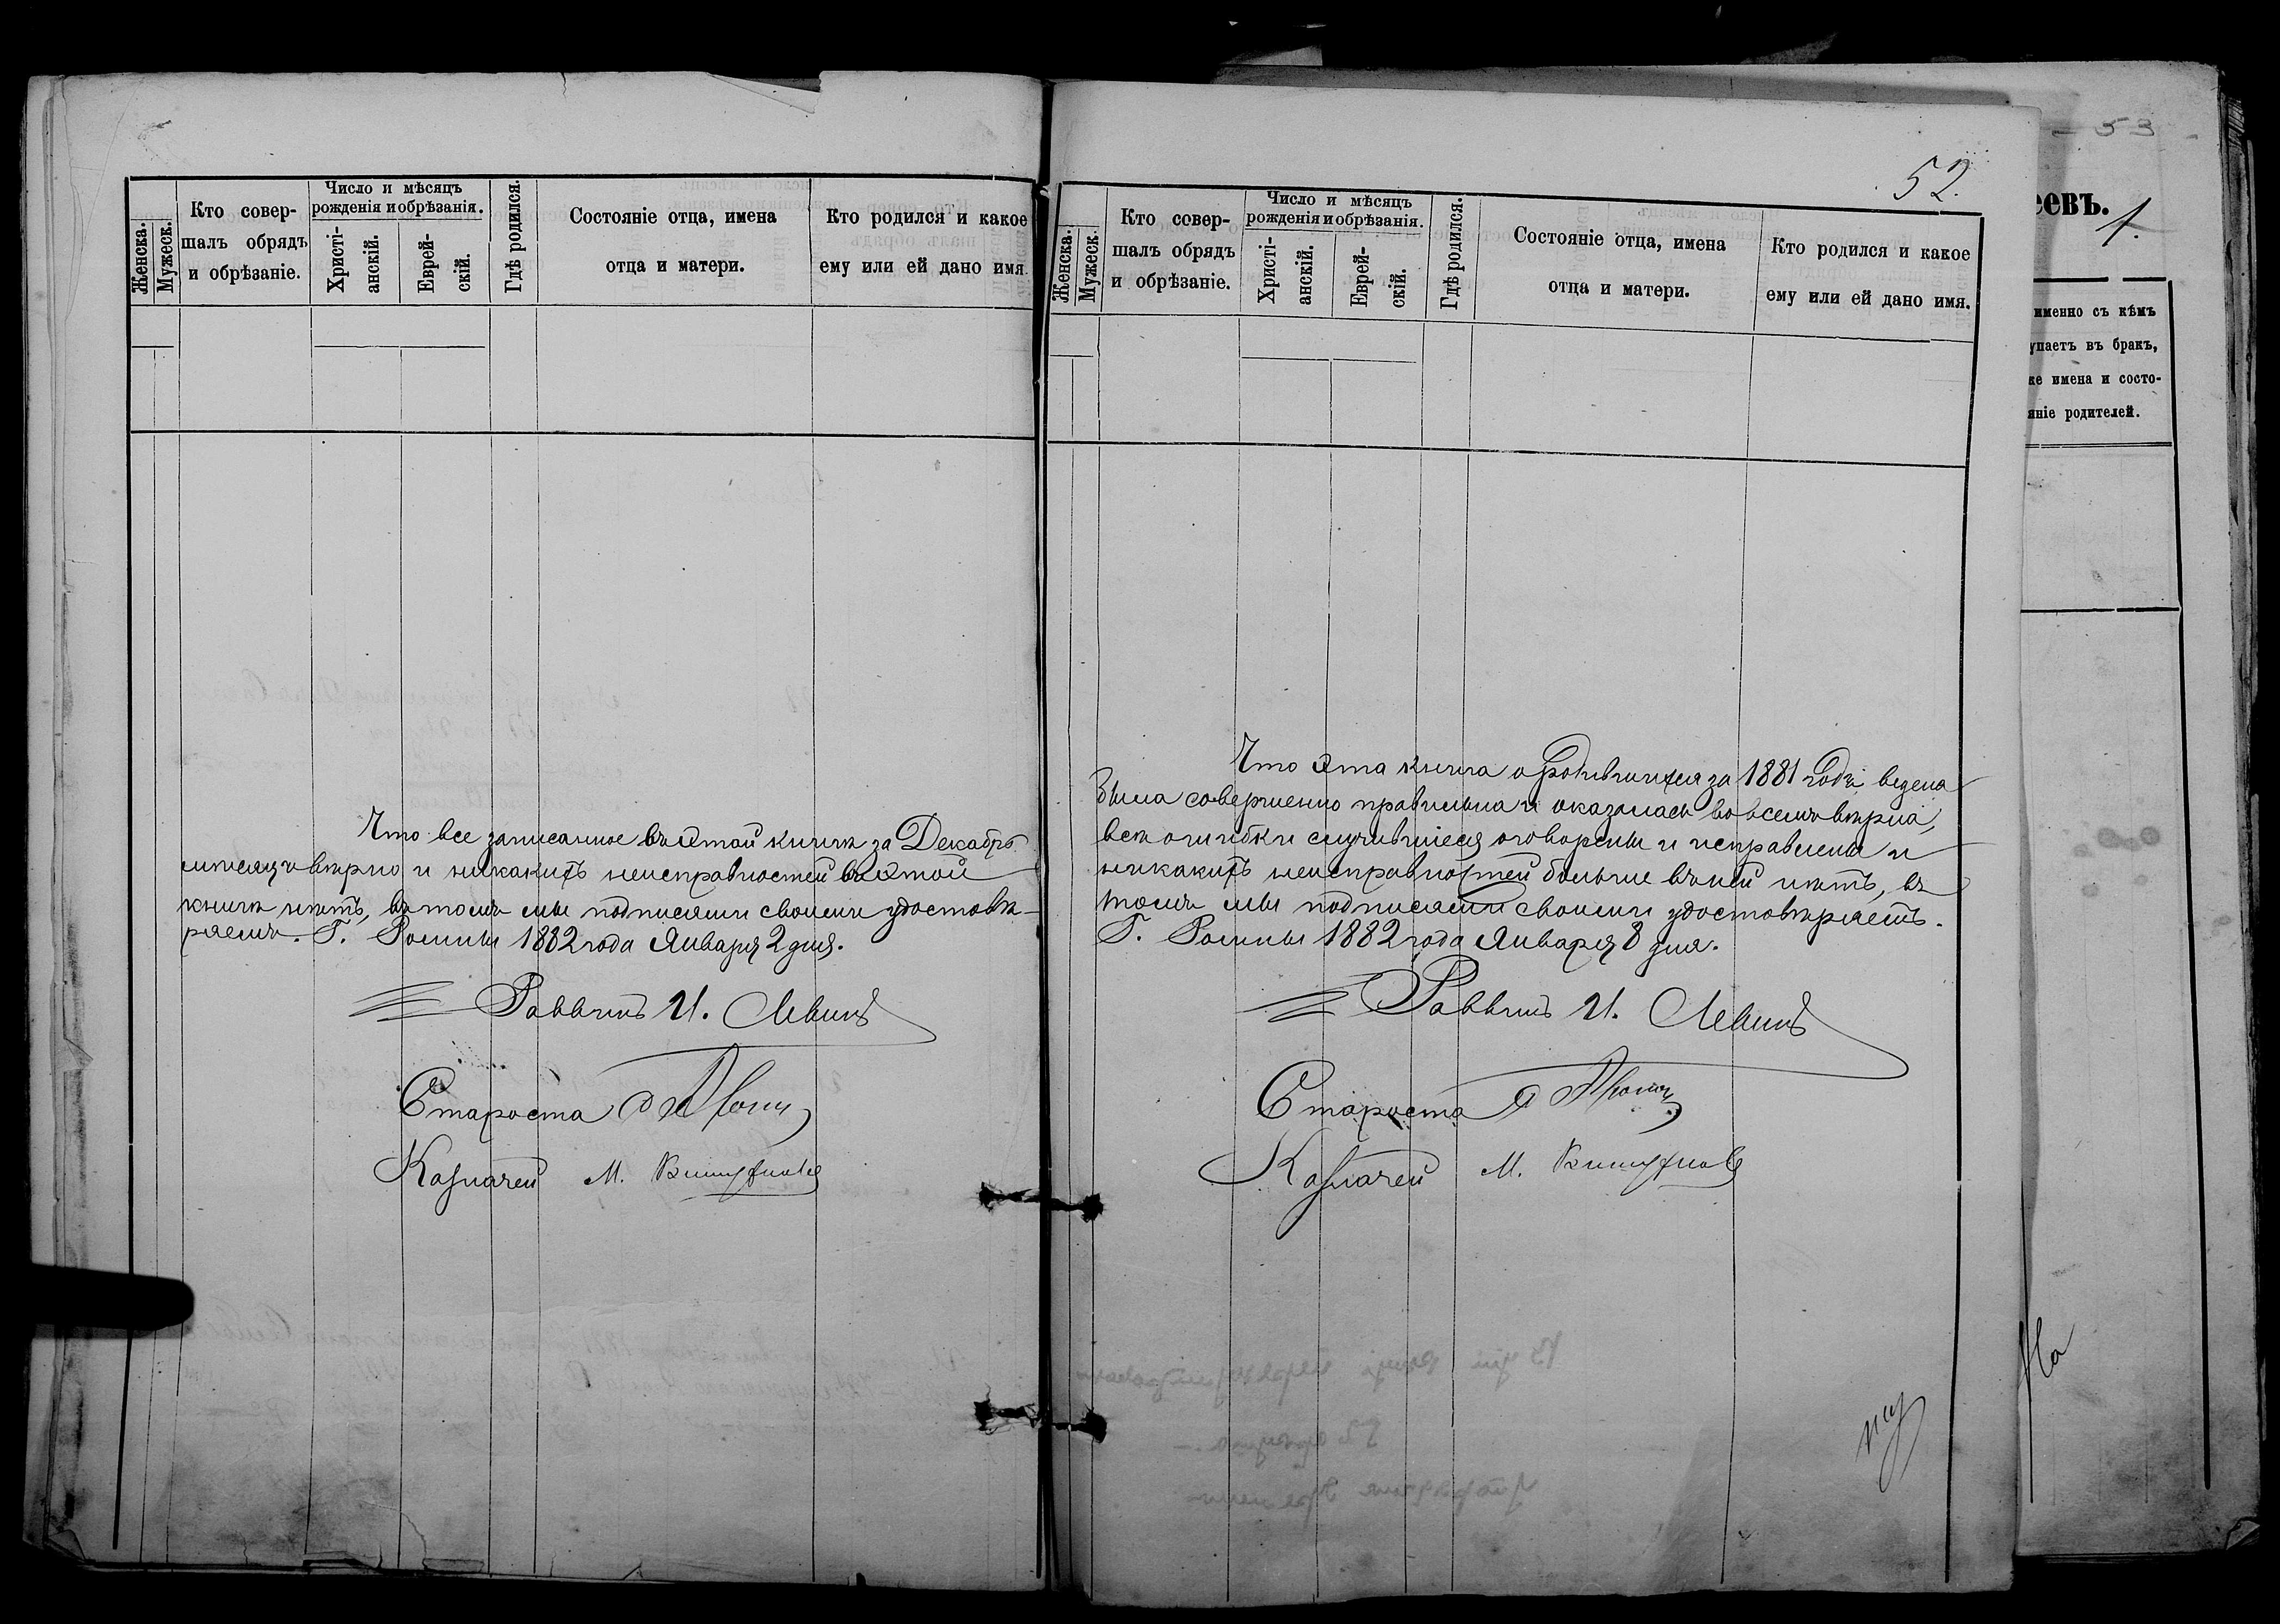 Женска.
Мужеск.
Кто совер-
шалъ обрядъ
и обрѣзаніе.
Число и мѣсяцъ
рожденія и обрѣзанія.
Христі-
анскій.
Еврей-
скій.
Гдѣ родился.
Состояніе отца, имена
отца и матери.
Кто родился и какое
ему или ей дано имя
Что все записанное въ этой книгѣ за Декабрь
мѣсяцъ вѣрно и никакихъ неисправностей въ этой
книгѣ нѣтъ, въ томъ мы подписями своими удостовѣ-
ряемъ. Г. Ромны 1882 года Января 2 дня.
Раввинъ И. Левинъ
Староста
Казначей М.
52.
Женска.
Мужеск.
Кто совер-
шалъ обрядъ
и обрѣзаніе.
Число и мѣсяцъ
рожденія и обрѣзанія.
Христі-
анскій.
Еврей-
скій.
Гдѣ родился.
Состояніе отца, имена
отца и матери.
Кто родился и какое
ему или ей дано имя.
Что эта книга о родившихся за 1881 годъ ведена
была совершенно правильна и оказалась во всемъ вѣрна,
всѣ ошибки случившіеся оговорены и исправлены и
никакихъ неисправностей больше въ ней нѣтъ, въ
томъ мы подписями своими удостовѣряемъ.
Г. Ромны 1882 года Января 8 дня.
Раввинъ И. Левинъ
Староста
Казначей М.
53
еевъ.
1.
именно съ кѣмъ
упаетъ въ бракъ,
же имена и состо-
яніе родителей.
На